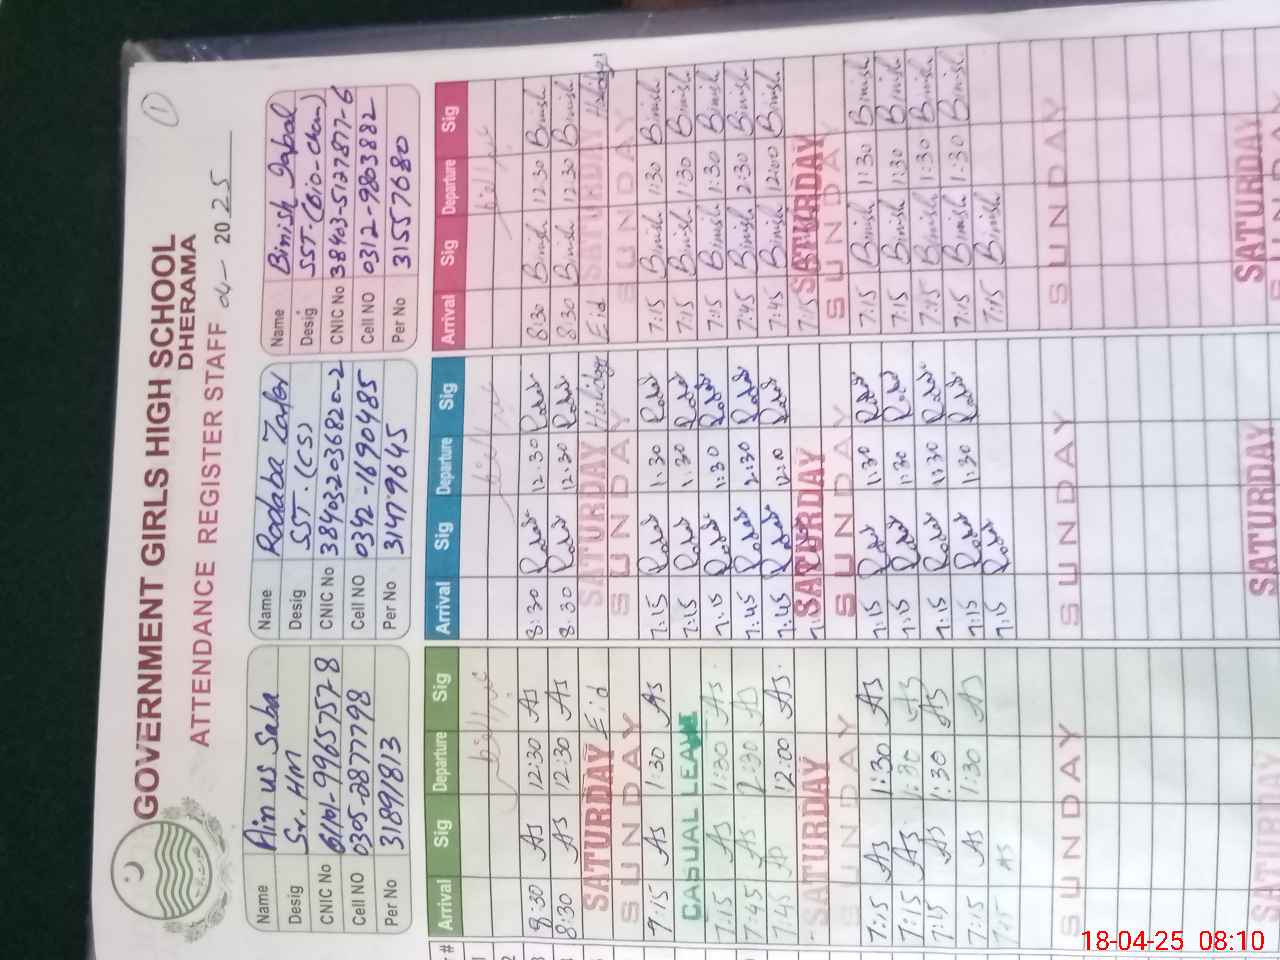 GOVERNMENT GIRLS HIGH SCHOOL
DHERAMA
ATTENDANCE REGISTER STAFF 4- 2025
1
Name Ain us Saba
Desig Sr. HM
CNIC No 61101-9965757-8
Cell NO 0305-2877798
Per No 31891813
Name Rodaba Zafar
Desig SST. (CS)
CNIC No 3840320368200-2
Cell NO 0342-1690485
Per No 31479645
Name Binish Iqbal
Desig SST-(Bio-Chem)
CNIC No 38403-5127877-6
Cell NO 0312-9803882
Per No 31557680
Arrival Sig Departure Sig Arrival Sig Departure Sig Arrival Sig Departure Sig
8:30 AS 12:30 AS 8:30 12:30 8:30 Binish 12:30 Binish
8:30 AS 12:30 AS 8:30 12:30 8:30 Binish 12:30 Binish
SATURDAY Eid SATURDAY Holiday Eid SATURDAY Holiday
SUNDAY SUNDAY SUNDAY
7:15 AS 1:30 AS 7:15 1:30 7:15 Binish 1:30 Binish
CASUAL LEAVE 7:15 1:30 7:15 Binish 1:30 Binish
7:15 AS 1:30 AS 7:15 1:30 7:15 Binish 1:30 Binish
7:45 AS 2:30 AS 7:45 2:30 7:45 Binish 2:30 Binish
7:45 AS 12:00 AS 7:45 12:00 7:45 Binish 12:00 Binish
SATURDAY SATURDAY 7:15 SATURDAY
SUNDAY SUNDAY SUNDAY
7:15 AS 1:30 AS 7:15 1:30 7:15 Binish 1:30 Binish
7:15 AS 1:30 AS 7:15 1:30 7:15 Binish 1:30 Binish
7:15 AS 1:30 AS 7:15 1:30 7:15 Binish 1:30 Binish
7:15 AS 1:30 AS 7:15 1:30 7:15 Binish 1:30 Binish
7:15 AS 7:15 7:15 Binish
SUNDAY SUNDAY SUNDAY
SATURDAY SATURDAY SATURDAY
18-04-25 08:10